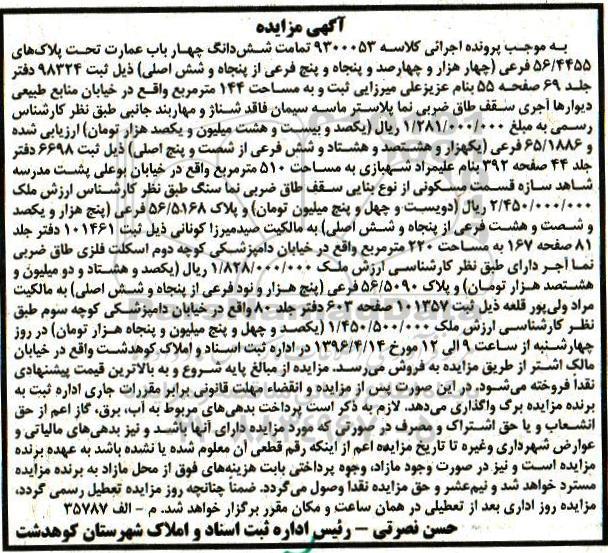 آگهی مزایده
به موجب پرونده اجرائی کلاسه ۹۳۰۰۰۵۳ تمامت شش‌دانگ چهار باب عمارت تحت پلاک‌های
۵۶/۴۴۵۵ فرعی (چهار هزار و چهارصد و پنجاه و پنج فرعی از پنجاه و شش اصلی) ذیل ثبت ۹۸۳۲۴ دفتر
جلد ۶۹ صفحه ۵۵ بنام عزیزعلی میرزایی ثبت و به مساحت ۱۴۴ مترمربع واقع در خیابان منابع طبیعی
دیوارها آجری سقف طاق ضربی نما پلاستر ماسه سیمان فاقد شناژ و مهاربند جانبی طبق نظر کارشناس
رسمی به مبلغ ۱/۲۸۱/۰۰۰/۰۰۰ ریال (یکصد و بیست و هشت میلیون و یکصد هزار تومان) ارزیابی شده
و ۶۵/۱۸۸۶ فرعی (یکهزار و هشتصد و هشتاد و شش فرعی از شصت و پنج اصلی) ذیل ثبت ۶۶۹۸ دفتر
جلد ۴۴ صفحه ۳۹۲ بنام علیمراد شهبازی به مساحت ۵۱۰ مترمربع واقع در خیابان بوعلی پشت مدرسه
شاهد سازه قسمت مسکونی از نوع بنایی سقف طاق ضربی نما سنگ طبق نظر کارشناس ارزش ملک
۲/۴۵۰/۰۰۰/۰۰۰ ریال (دویست و چهل و پنج میلیون تومان) و پلاک ۵۶/۵۱۶۸ فرعی (پنج هزار و یکصد
و شصت و هشت فرعی از پنجاه و شش اصلی) به مالکیت صیدمیرزا کونانی ذیل ثبت ۱۰۱۴۶۱ دفتر جلد
۸۱ صفحه ۱۶۷ به مساحت ۲۲۰ مترمربع واقع در خیابان دامپزشکی کوچه دوم اسکلت فلزی طاق ضربی
نما آجر دارای طبق نظر کارشناسی ارزش ملک ۱/۸۲۸/۰۰۰/۰۰۰ ریال (یکصد و هشتاد و دو میلیون و
هشتصد هزار تومان) و پلاک ۵۶/۵۰۹۰ فرعی (پنج هزار و نود فرعی از پنجاه و شش اصلی) به مالکیت
مراد ولی‌پور قلعه ذیل ثبت ۱۰۱۳۵۷ صفحه ۶۰۳ دفتر جلد ۸۰ واقع در خیابان دامپزشکی کوچه سوم طبق
نظر کارشناسی ارزش ملک ۱/۴۵۰/۵۰۰/۰۰۰ (یکصد و چهل و پنج میلیون و پنجاه هزار تومان) در روز
چهارشنبه از ساعت ۹ الی ۱۲ مورخ ۱۳۹۶/۴/۱۴ در اداره ثبت اسناد و املاک کوهدشت واقع در خیابان
مالک اشتر از طریق مزایده به فروش می‌رسد. مزایده از مبالغ پایه شروع و به بالاترین قیمت پیشنهادی
نقدا فروخته می‌شود، در این صورت پس از مزایده و انقضاء مهلت قانونی برابر مقررات جاری اداره ثبت به
برنده مزایده برگ واگذاری می‌دهد. لازم به ذکر است پرداخت بدهی‌های مربوط به آب، برق، گاز اعم از حق
انشعاب و یا حق اشتراک و مصرف در صورتی که مورد مزایده دارای آنها باشد و نیز بدهی‌های مالیاتی و
عوارض شهرداری وغیره تا تاریخ مزایده اعم از اینکه رقم قطعی آن معلوم شده یا نشده باشد به عهده برنده
مزایده است و نیز در صورت وجود مازاد، وجوه پرداختی بابت هزینه‌های فوق از محل مازاد به برنده مزایده
مسترد خواهد شد و نیم‌عشر و حق مزایده نقدا وصول می‌گردد. ضمناً چنانچه روز مزایده تعطیل رسمی گردد،
مزایده روز اداری بعد از تعطیلی در همان ساعت و مکان مقرر برگزار خواهد شد. م - الف ۳۵۷۸۷
حسن نصرتی - رئیس اداره ثبت اسناد و املاک شهرستان کوهدشت